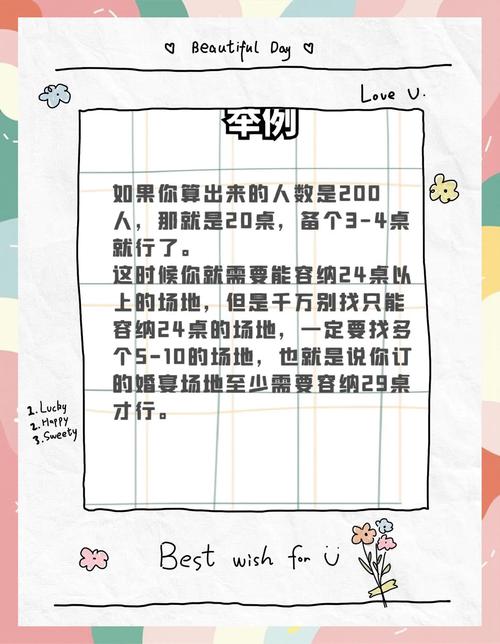 Beautiful Day
Love U.
举例
如果你算出来的人数是200
人，那就是20桌，备个3-4桌
就行了。
这时候你就需要能容纳24桌以
上的场地，但是千万别找只能
容纳24桌的场地，一定要找多
个5-10的场地，也就是说你订
的婚宴场地至少需要容纳29桌
才行。
1. Lucky
2. Happy
3. Sweety
Best wish for U